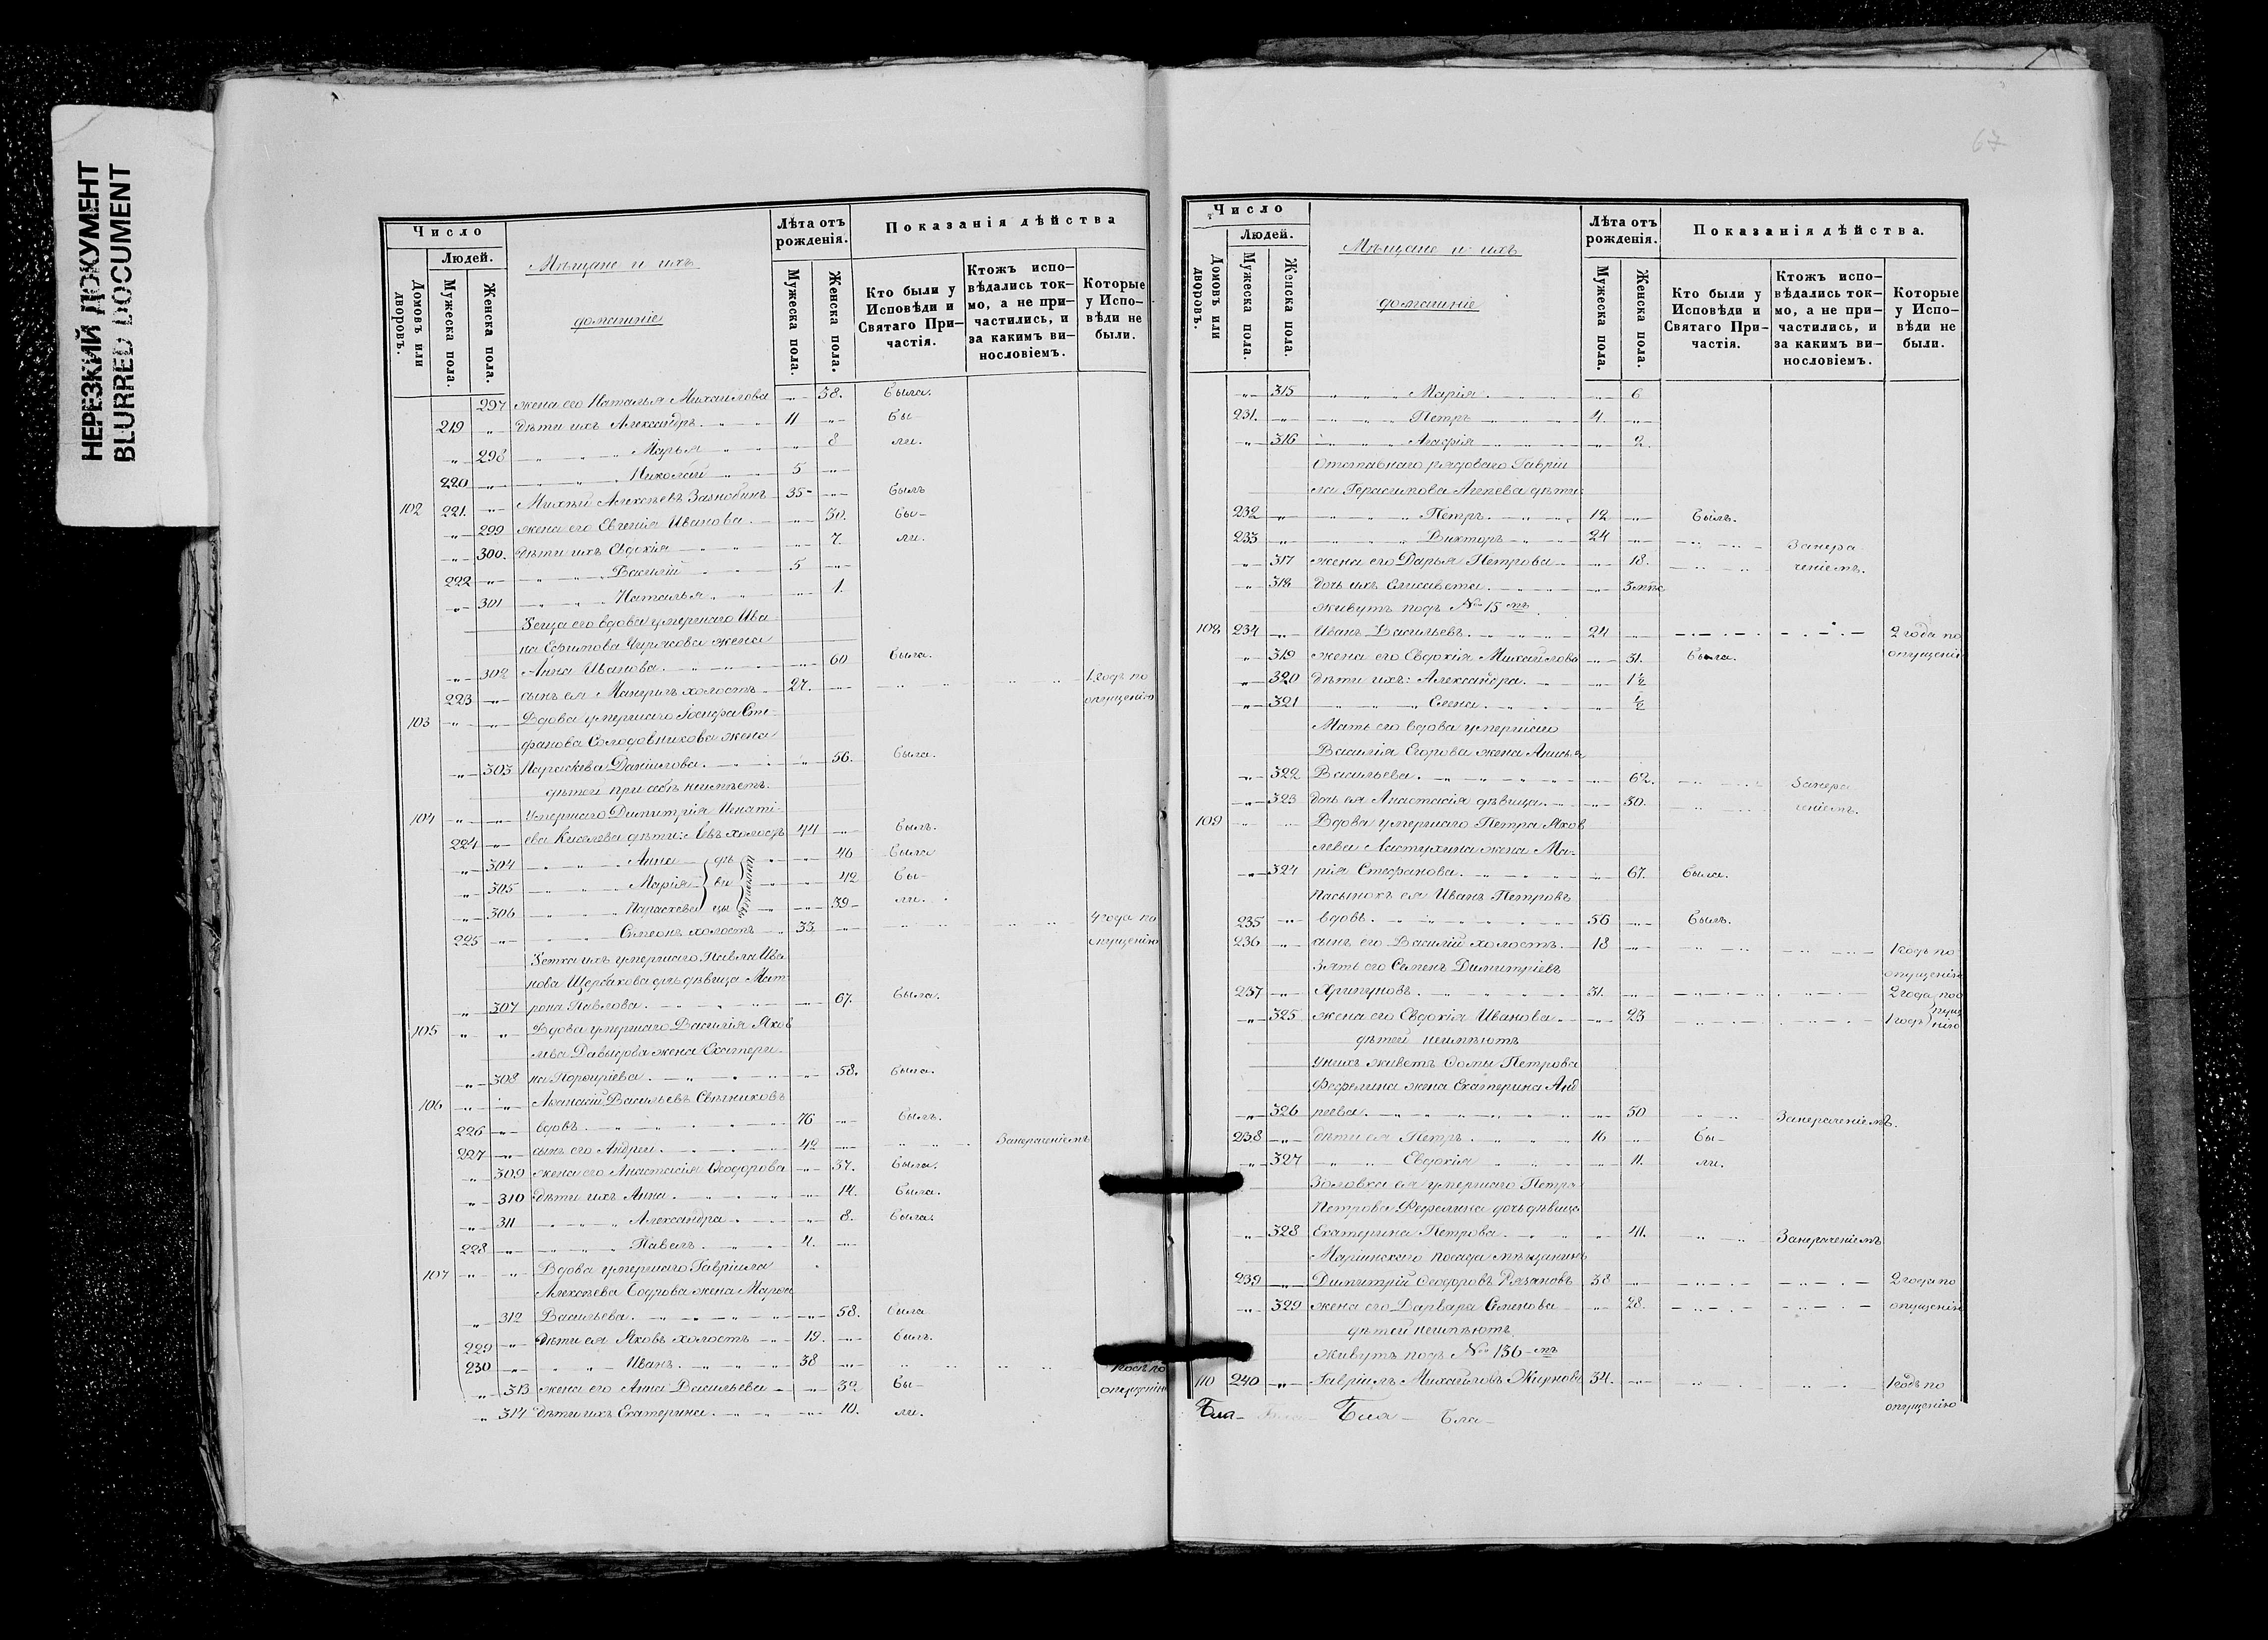 НЕРЕЗКИЙ ДОКУМЕНТ
BLURRED DOCUMENT
Число
Людей.
Домовъ или дворовъ.
Мужеска пола.
Женска пола.
Мѣщане и ихъ
домашніе
Лѣта отъ рожденія.
Мужеска пола.
Женска пола.
Показанія дѣйства
Кто были у Исповѣди и Святаго При-частія.
Ктожъ испо-вѣдались ток-мо, а не при-частились, и за какимъ ви-нословіемъ.
Которые у Испо-вѣди не были.
297 жена его Наталья Михайлова 38. была.
219 дѣти ихъ Александръ 11 бы-
298 Марья 8 ли.
220 Николай 5
102 221. Михѣй Алексѣевъ Зазнобинъ 35 былъ
299 жена его Евгенія Иванова 30. бы-
300. дѣти ихъ Евдокія 7. ли.
222 Василій 5
301 Наталья 1.
Теща его вдова умершаго Ива
на Ефимова жена
302 Анна Иванова. 60 была.
223 сынъ ея холостъ 27. 1 годъ по
опущенію
103 Вдова умершаго Іосифа Сте-
фанова Солодовникова жена
303 Параскева Даніилова. 56. была.
дѣтей при себѣ неимѣетъ.
104 Умершаго Димитрія Игнаті-
224 ева Киселева дѣти: Левъ холостъ 44 былъ.
304 Анна дѣ 46 была
305 Марія ви 42 бы-
306 Параскева цы 39 ли.
225 Симеонъ холостъ 33 4 года по
опущенію
Тетка ихъ умершаго Павла Ива
нова Щербакова дочь дѣвица Мат-
307 рона Павлова. 67. была.
105 Вдова умершаго Василія Яков
лева Давыдова жена Екатери-
308 на Порфиріева. 58. была.
106 Афанасій Васильевъ Свѣшниковъ
226 вдовъ. 76 былъ.
227 сынъ его Андрей. 42 Занерачениемъ
309 жена его Анастасія Ѳеодорова 37. была.
310 дѣти ихъ Анна. 14. была.
311 Александра 8. была.
228 Павелъ. 4.
107 Вдова умершаго Гавріила
Алексѣева Бодрова жена Марья
312 Васильева. 58. была
229 дѣти ея Яковъ холостъ 19. былъ.
230 Иванъ. 38 1 годъ по
313 жена его Анна Васильева 32 бы- опущенію
314 дѣти ихъ Екатерина. 10. ли.
67
Число
Людей.
Домовъ или дворовъ.
Мужеска пола.
Женска пола.
Мѣщане и ихъ
домашніе
Лѣта отъ рожденія.
Мужеска пола.
Женска пола.
Показанія дѣйства.
Кто были у Исповѣди и Святаго При-частія.
Ктожъ испо-вѣдались ток-мо, а не при-частились, и за какимъ ви-нословіемъ.
Которые у Испо-вѣди не были.
315 Марія. 6
231. Петръ 4.
316 Агафія 2.
Отставнаго рядоваго Гаврии
ла Герасимова Агеева дѣти:
232 Петръ. 12 былъ.
233 Викторъ 24 Занера
317 жена его Дарья Петрова 18. чениемъ.
318 дочь ихъ Елисавета. 3 мѣс
живутъ подъ № 15 мъ.
108 234 Иванъ Васильевъ. 24 2 года по
319 жена его Евдокія Михайлова 31. была. опущенію
320 дѣти ихъ: Александра. 1 ½
321 Елена. ½
Мать его вдова умершаго
Василія Егорова жена Анисья
322 Васильева. 62. Занера
323 дочь ея Анастасія дѣвица. 30. чениемъ.
109 Вдова умершаго Петра Яков
лева Ластухина жена Ма-
324 рія Стефанова. 67. была.
Пасынокъ ея Иванъ Петровъ
235 вдовъ. 56 былъ.
236 сынъ его Василій холостъ. 18 1 годъ по
опущенію
Зять его Семенъ Димитріевъ
237 Хрипуновъ. 31. 2 года по о
пуще
325 жена его Евдокія Иванова 23 1 годъ нію
дѣтей неимѣютъ
Унихъ живетъ Ѳомы Петрова
Фефелина жена Екатерина Анд
326 реева. 50 Занерачениемъ.
238 дѣти ея Петръ. 16 бы-
327 Евдокія 11. ли.
Золовка ея умершаго Петра
Петрова Фефелина дочь дѣвица
328 Екатерина Петрова. 41. Занерачениемъ
Маріинскаго посада мѣщанинъ
239 Димитрій Ѳеодоровъ Рязановъ 38 2 года по
329 жена его Варвара Семенова 28. опущенію
дѣтей неимѣютъ.
живутъ подъ № 136-мъ
110 240 Гавріилъ Михайловъ Жирновъ 34. 1 годъ по
опущенію